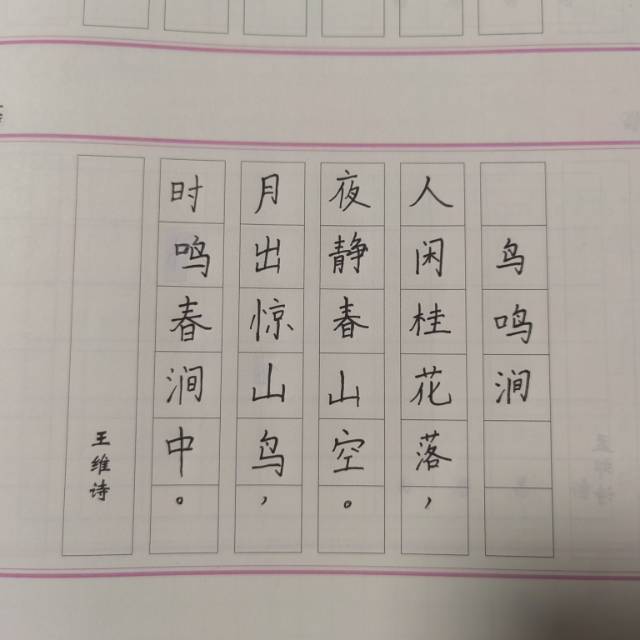 鸟鸣涧
人闲桂花落，
夜静春山空。
月出惊山鸟，
时鸣春涧中。
王维诗